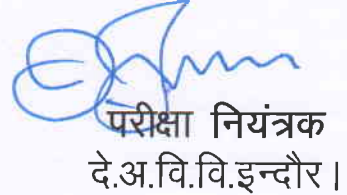 परीक्षा नियंत्रक
दे.अ.वि.वि.इन्दौर।